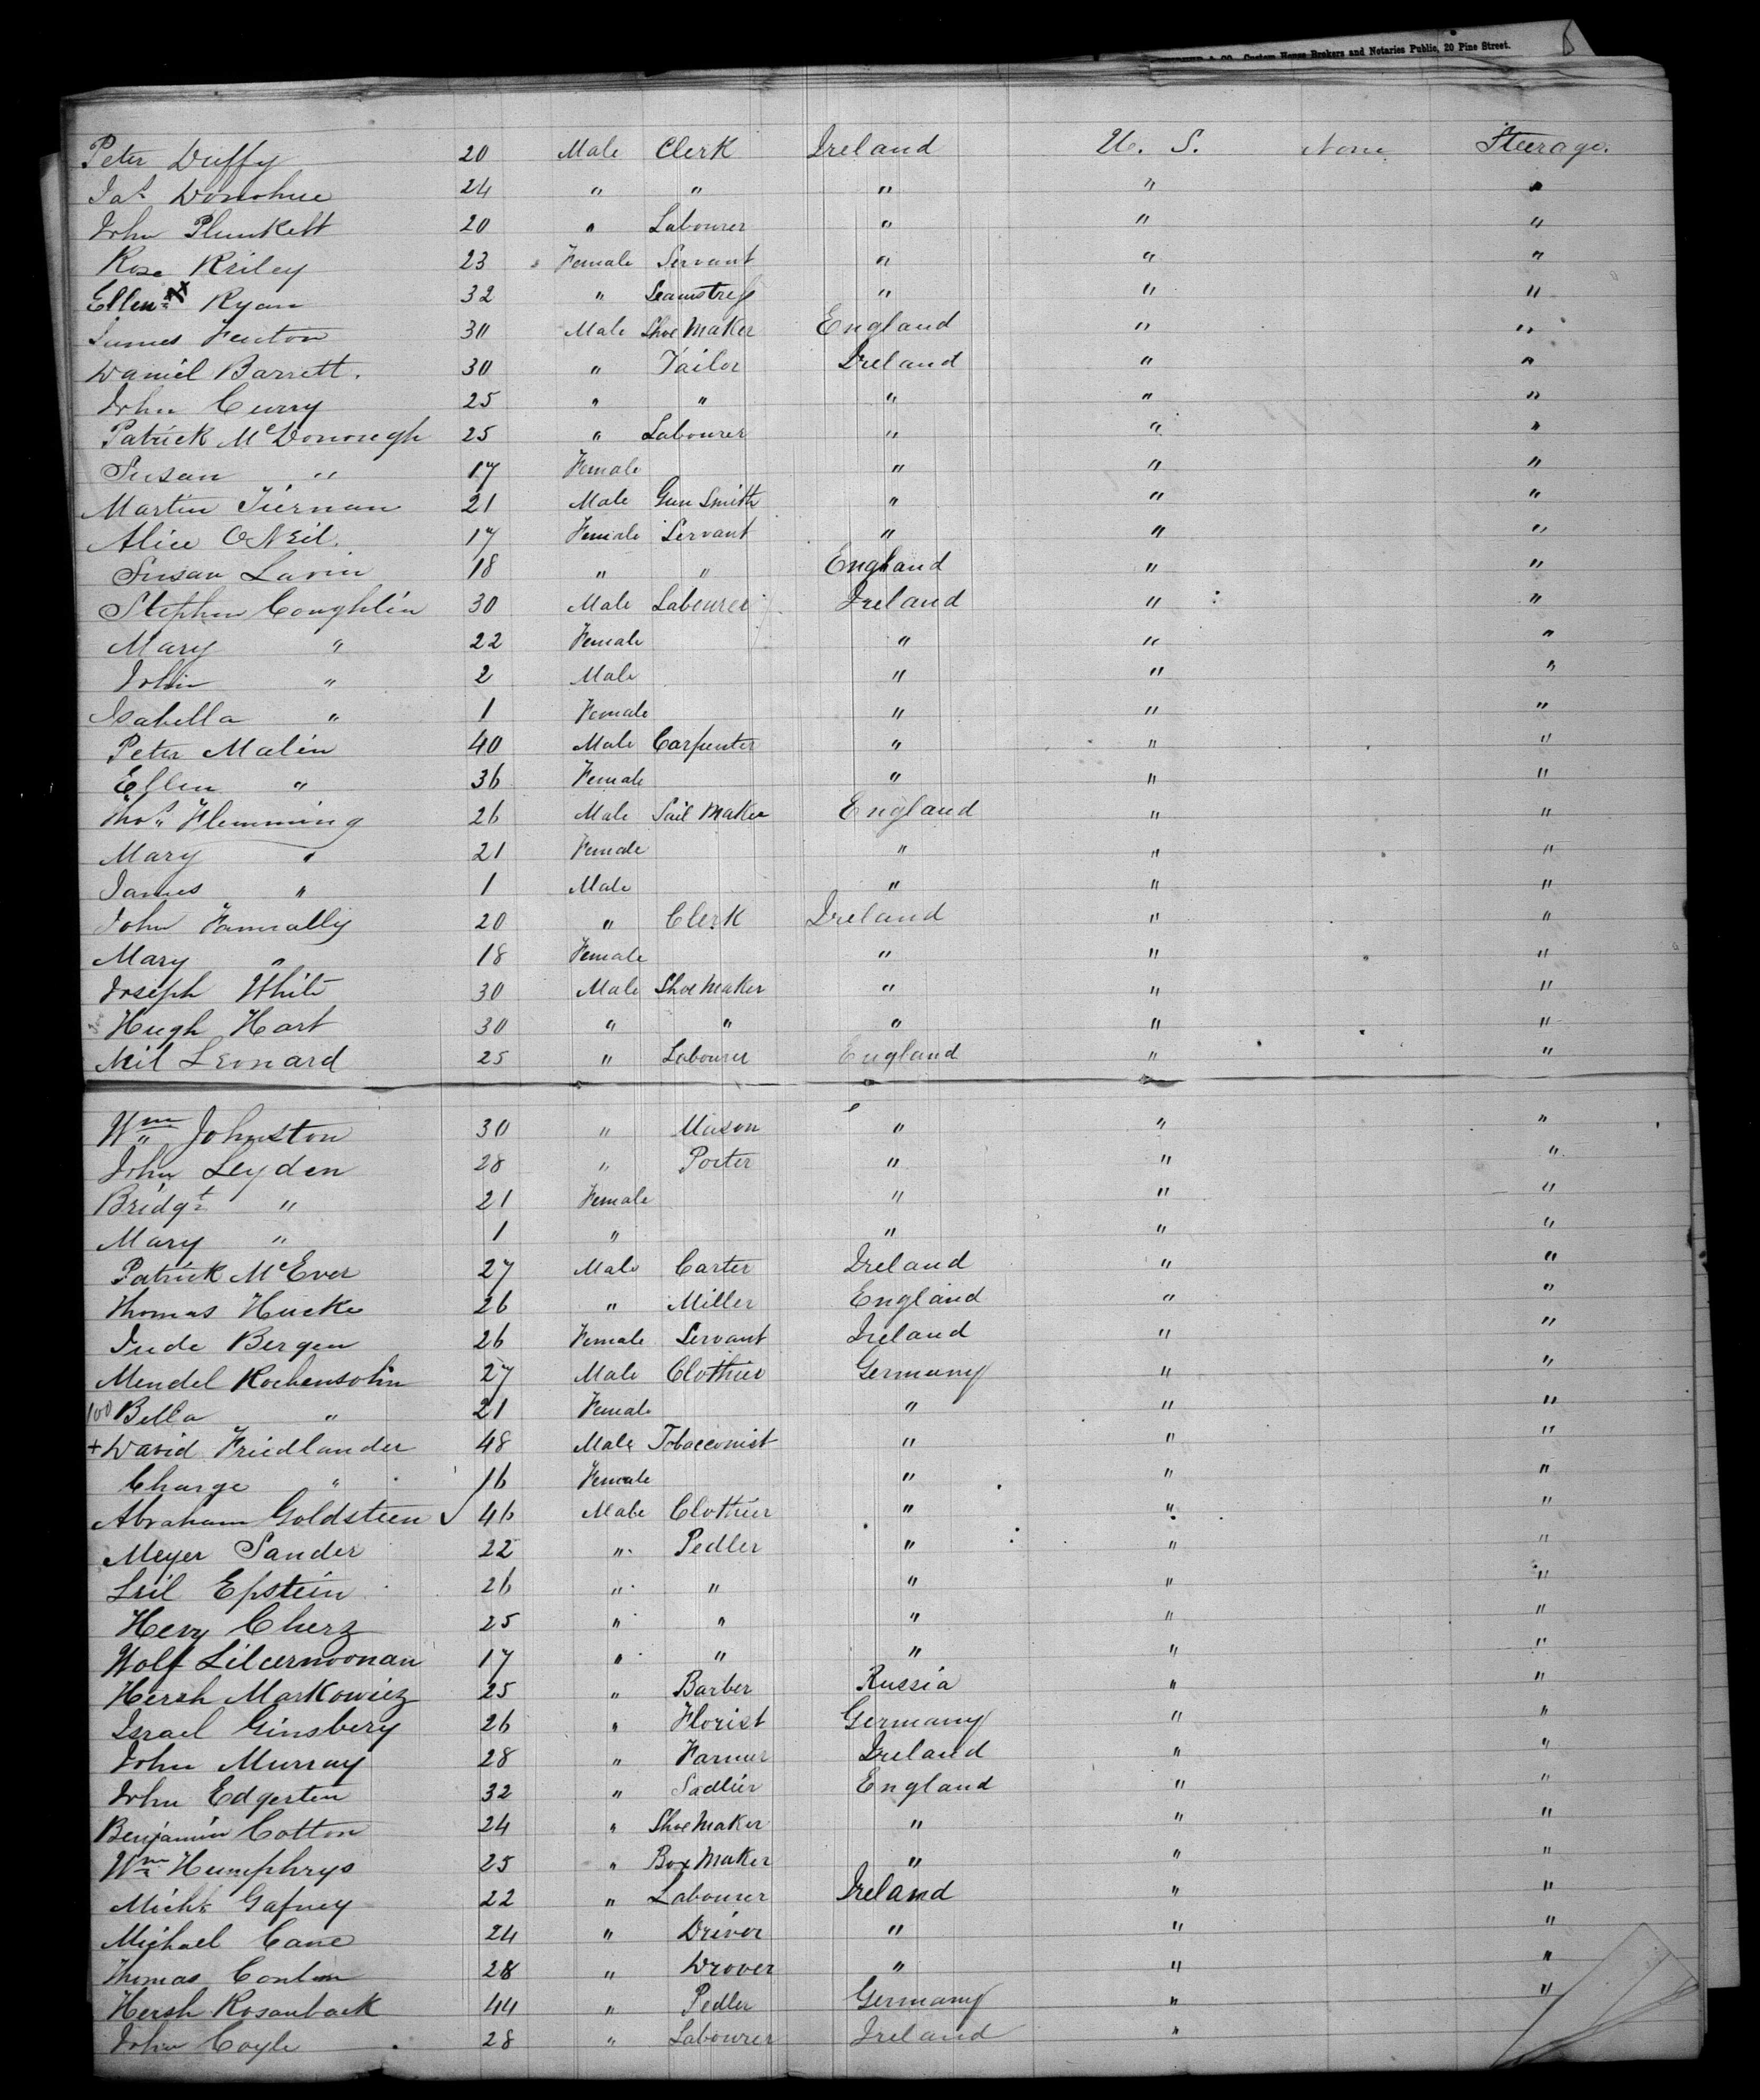 Custom House Brokers and Notaries Public, 20 Pine Street.
Peter Duffy 20 Male Clerk Ireland U. S. None Steerage.
Pat Donohue 24 " " " " "
John Plunkett 20 " Labourer " " "
Rose Rriley 23 Female Servant " " "
Ellen Ryan 32 " Seamstress " " "
James Fenton 30 Male Shoe Maker England " "
Daniel Barrett. 30 " Tailor Ireland " "
John Curry 25 " " " " "
Patrick McDonough 25 " Labourer " " "
Susan " 17 Female " " "
Martin Tiernan 21 Male Gun Smith " " "
Alice ONeil. 17 Female Servant " " "
Susan Lavin 18 " " England " "
Stephen Coughlin 30 Male Labourer Ireland " "
Mary " 22 Female " " "
John " 2 Male " " "
Isabella " 1 Female " " "
Peter Malin 40 Male Carpenter " " "
Ellen " 36 Female " " "
Thos Flemming 26 Male Sail Maker England " "
Mary " 21 Female " " "
James " 1 Male " " "
John 20 " Clerk Ireland " "
Mary " 18 Female " " "
Joseph White 30 Male Shoe Maker " " "
Hugh Hart 30 " " " " "
Neil Leonard 25 " Labourer England " "
Wm Johnston 30 " Mason " " "
John Leyden 28 " Porter " " "
Bridgt " 21 Female " " "
Mary " 1 " " " "
Patrick McEver 27 Male Carter Ireland " "
Thomas Hucke 26 " Miller England " "
Jude Bergen 26 Female Servant Ireland " "
Mendel Rochensohn 27 Male Clothier Germany " "
100 Bella " 21 Female " " "
+ David Friedlander 48 Male Tobacconist " " "
Charge " 16 Female " " "
Abraham Goldsteen ✓ 46 Male Clothier " " "
Meyer Sander 22 " Pedler " " "
Leil Epstein 26 " " " " "
Hevy Cherz 25 " " " " "
Wolf 17 " " " " "
Hersh Markowicz 25 " Barber Russia " "
Israel Ginsberg 26 " Florist Germany " "
John Murray 28 " Farmer Ireland " "
John Edgerten 32 " Sadlier England " "
Benjamin Cotton 24 " Shoe Maker " " "
Wm Humphrys 25 " Box Maker " " "
Michl Gafney 22 " Labourer Ireland " "
Michael Cane 24 " Driver " " "
Thomas Conlon 28 " Drover " " "
Hersh Rosanback 44 " Pedler Germany " "
John Coyle 28 " Labourer Ireland "